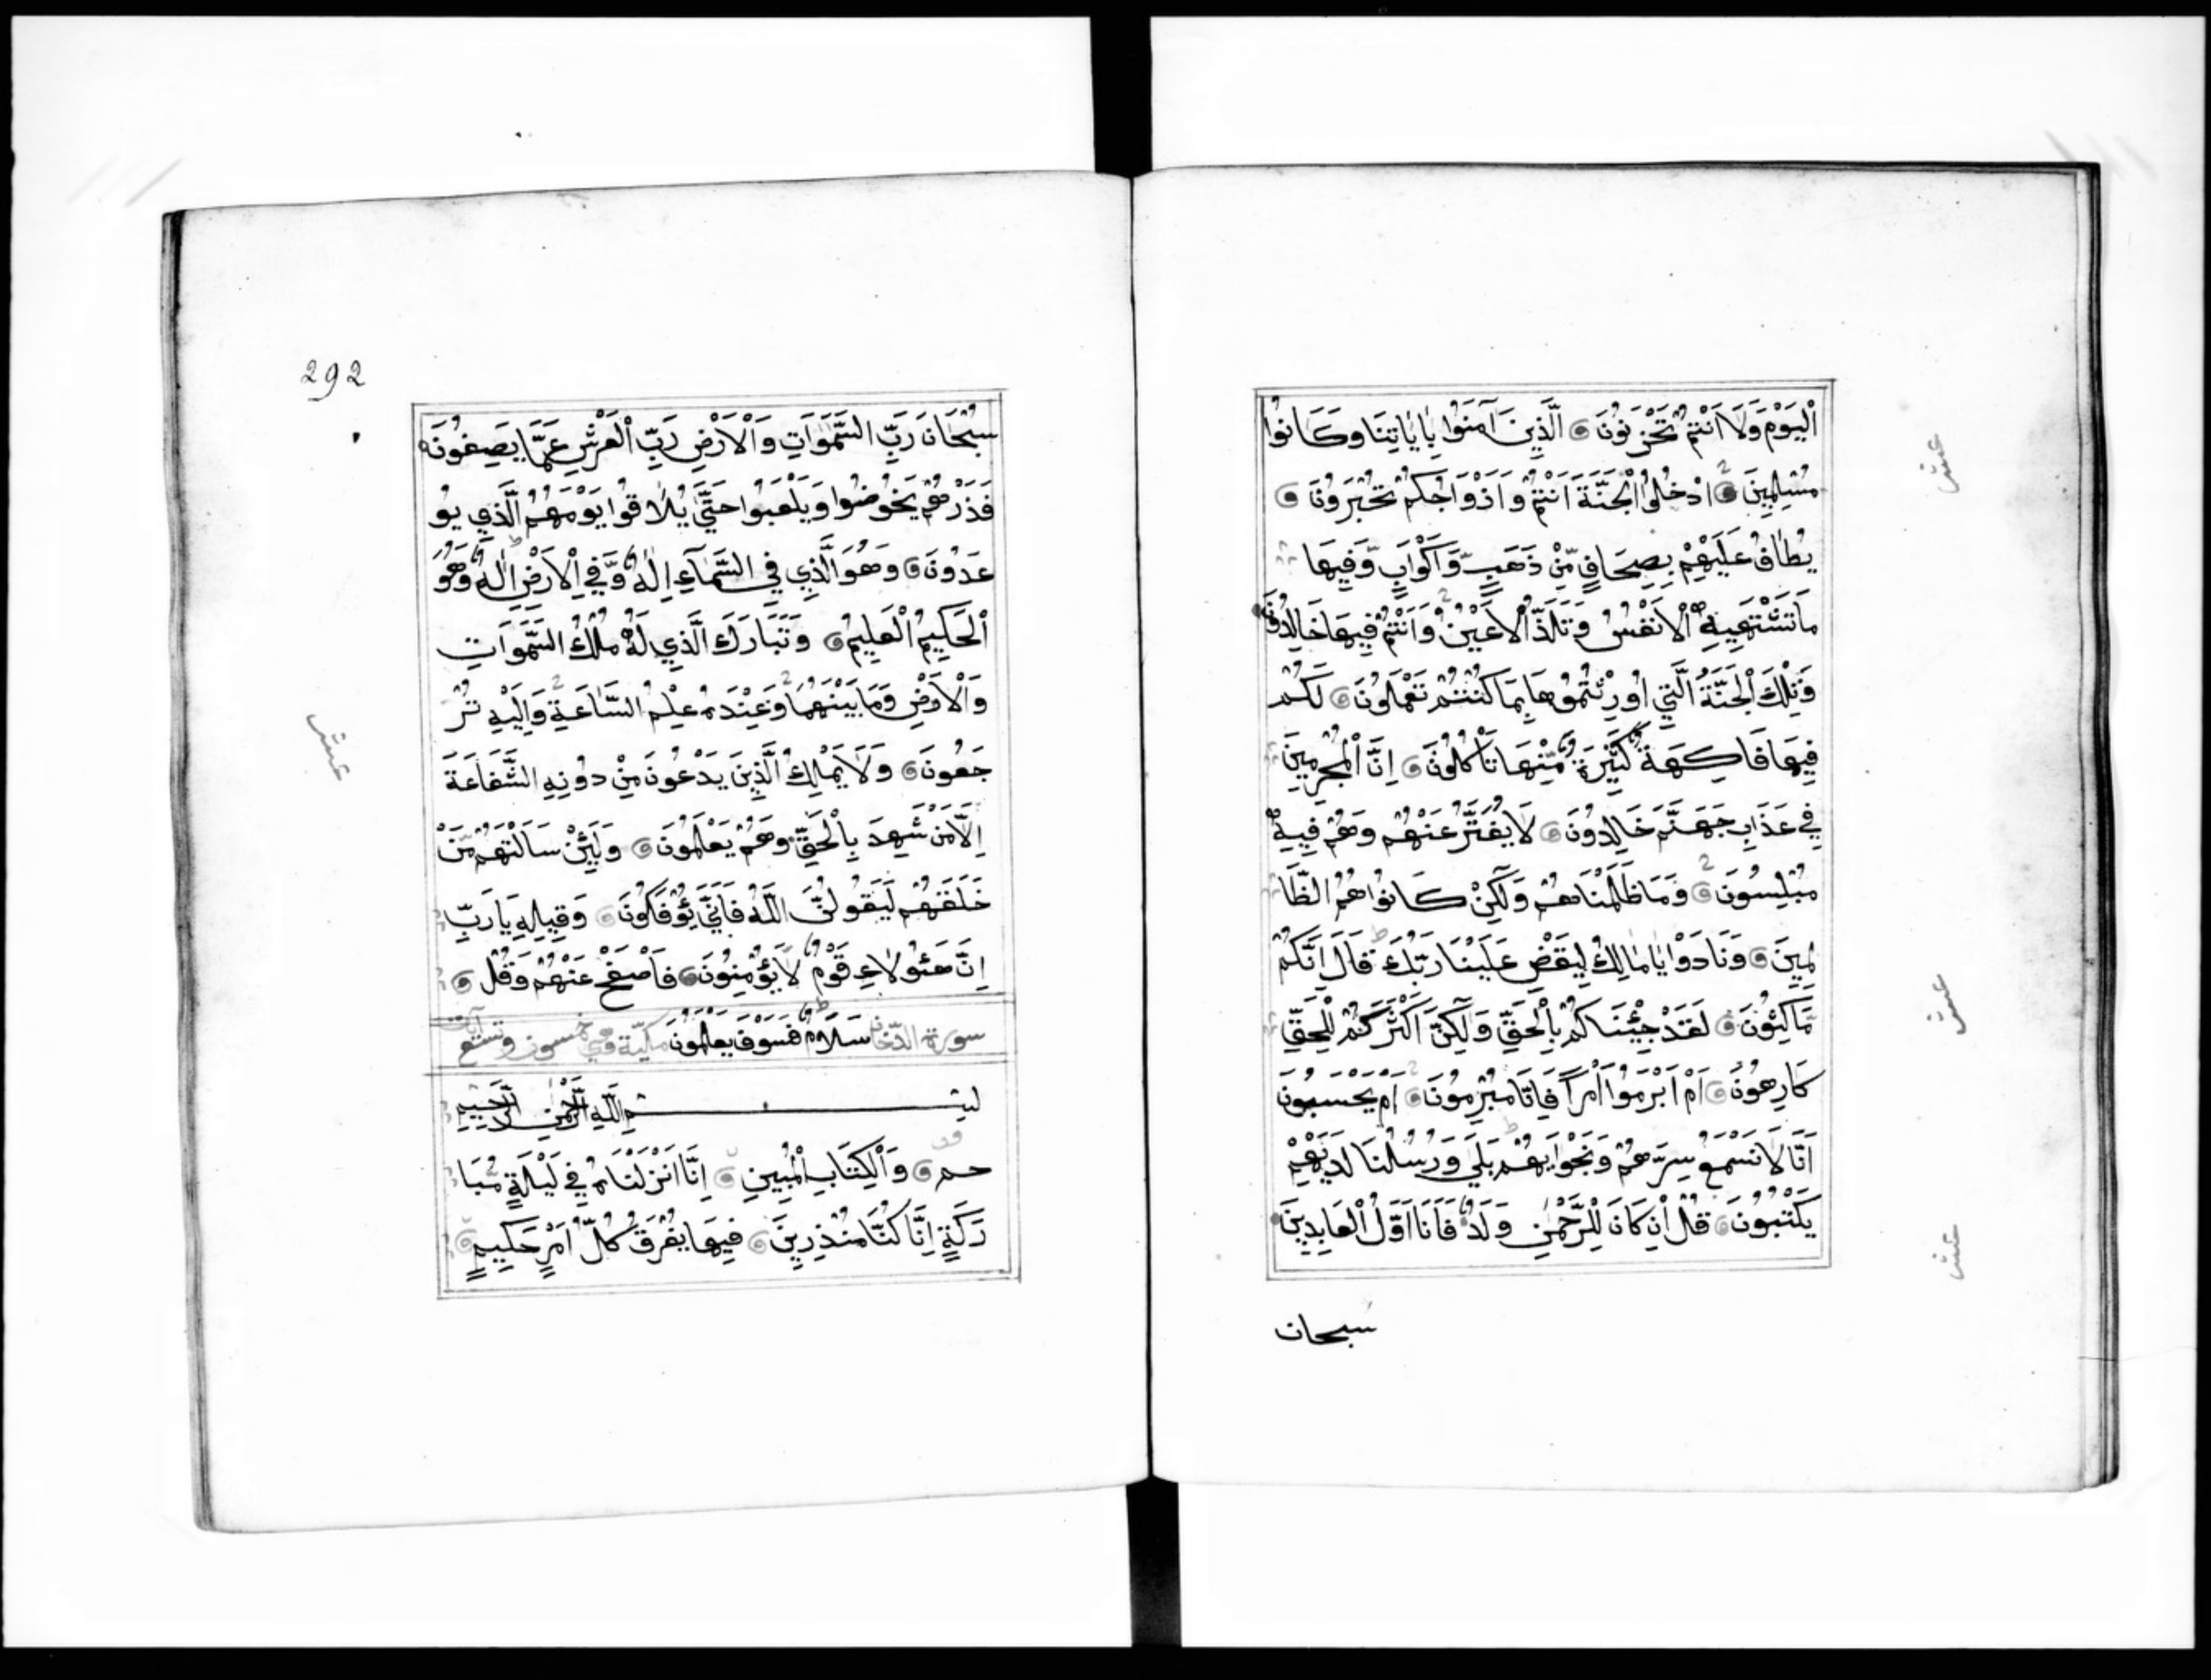 اَلْيَوْمَ وَلَا اَنْتُمْ تَحْزَنُونَ الَّذِينَ آمَنُوا بِاٰيَاتِنَا وَكَانُوا
مُسْلِمِينَ اُدْخُلُوا الْجَنَّةَ اَنْتُمْ وَاَزْوَاجُكُمْ تُحْبَرُونَ
يُطَافُ عَلَيْهِمْ بِصِحَافٍ مِّنْ ذَهَبٍ وَّاَكْوَابٍ وَّفِيهَا
مَا تَشْتَهِيهِ الْاَنْفُسُ وَتَلَذُّ الْاَعْيُنُ وَاَنْتُمْ فِيهَا خَالِدُونَ
وَتِلْكَ الْجَنَّةُ الَّتِي اُورِثْتُمُوهَا بِمَا كُنْتُمْ تَعْمَلُونَ لَكُمْ
فِيهَا فَاكِهَةٌ كَثِيْرَةٌ مِّنْهَا تَأْكُلُونَ اِنَّ الْمُجْرِمِينَ
فِي عَذَابِ جَهَنَّمَ خَالِدُونَ لَا يُفَتَّرُ عَنْهُمْ وَهُمْ فِيهِ
مُبْلِسُونَ وَمَا ظَلَمْنَاهُمْ وَلَكِنْ كَانُوا هُمُ الظَّا
لِمِينَ وَنَادَوْا يَا مَالِكُ لِيَقْضِ عَلَيْنَا رَبُّكَ قَالَ اِنَّكُمْ
مَّاكِثُونَ لَقَدْ جِئْنَاكُمْ بِالْحَقِّ وَلَكِنَّ اَكْثَرَكُمْ لِلْحَقِّ
كَارِهُونَ اَمْ اَبْرَمُوا اَمْرًا فَاِنَّا مُبْرِمُونَ اَمْ يَحْسَبُونَ
اَنَّا لَا نَسْمَعُ سِرَّهُمْ وَنَجْوَايهُمْ بَلَى وَرُسُلُنَا لَدَيْهِمْ
يَكْتُبُونَ قُلْ اِنْ كَانَ لِلرَّحْمٰنِ وَلَدٌ فَاَنَا اَوَّلُ الْعَابِدِينَ
سبحان
عشر
عشر
عشر
292
سُبْحَانَ رَبِّ السَّمٰوَاتِ وَالْاَرْضِ رَبِّ الْعَرْشِ عَمَّا يَصِفُونَ
فَذَرْهُمْ يَخُوضُوا وَيَلْعَبُوا حَتَّى يُلَاقُوا يَوْمَهُمُ الَّذِي يُو
عَدُونَ وَهُوَ الَّذِي فِي السَّمَآءِ اِلٰهٌ وَّفِي الْاَرْضِ اِلٰهٌ وَهُوَ
الْحَكِيمُ الْعَلِيمُ وَتَبَارَكَ الَّذِي لَهُ مُلْكُ السَّمٰوَاتِ
وَالْاَرْضِ وَمَا بَيْنَهُمَا وَعِنْدَهُ عِلْمُ السَّاعَةِ وَاِلَيْهِ تُرْ
جَعُونَ وَلَا يَمْلِكُ الَّذِينَ يَدْعُونَ مِنْ دُونِهِ الشَّفَاعَةَ
اِلَّا مَنْ شَهِدَ بِالْحَقِّ وَهُمْ يَعْلَمُونَ وَلَئِنْ سَاَلْتَهُمْ مَّنْ
خَلَقَهُمْ لَيَقُولُنَّ اللّٰهُ فَاَنَّى يُؤْفَكُونَ وَقِيلِهِ يَا رَبِّ
اِنَّ هَئُولَاءِ قَوْمٌ لَا يُؤْمِنُونَ فَاصْفَحْ عَنْهُمْ وَقُلْ
سورة الدخان سَلَامٌ فَسَوْفَ يَعْلَمُونَ مكيّة وهي خمسون وتسع آيات
بِسْمِ اللّٰهِ الرَّحْمٰنِ الرَّحِيمِ
حم وَالْكِتَابِ الْمُبِينِ اِنَّا اَنْزَلْنَاهُ فِي لَيْلَةٍ مُّبَا
رَكَةٍ اِنَّا كُنَّا مُنْذِرِينَ فِيهَا يُفْرَقُ كُلُّ اَمْرٍ حَكِيمٍ
عشر